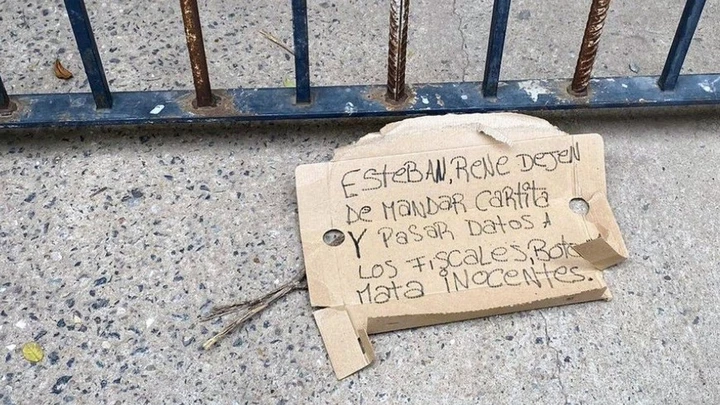 ESTEBAN, RENE DEJEN
De MANDAR CARTITA
Y PASAR DATOS A
LOS FISCALES, 
MATA INOCENTES.